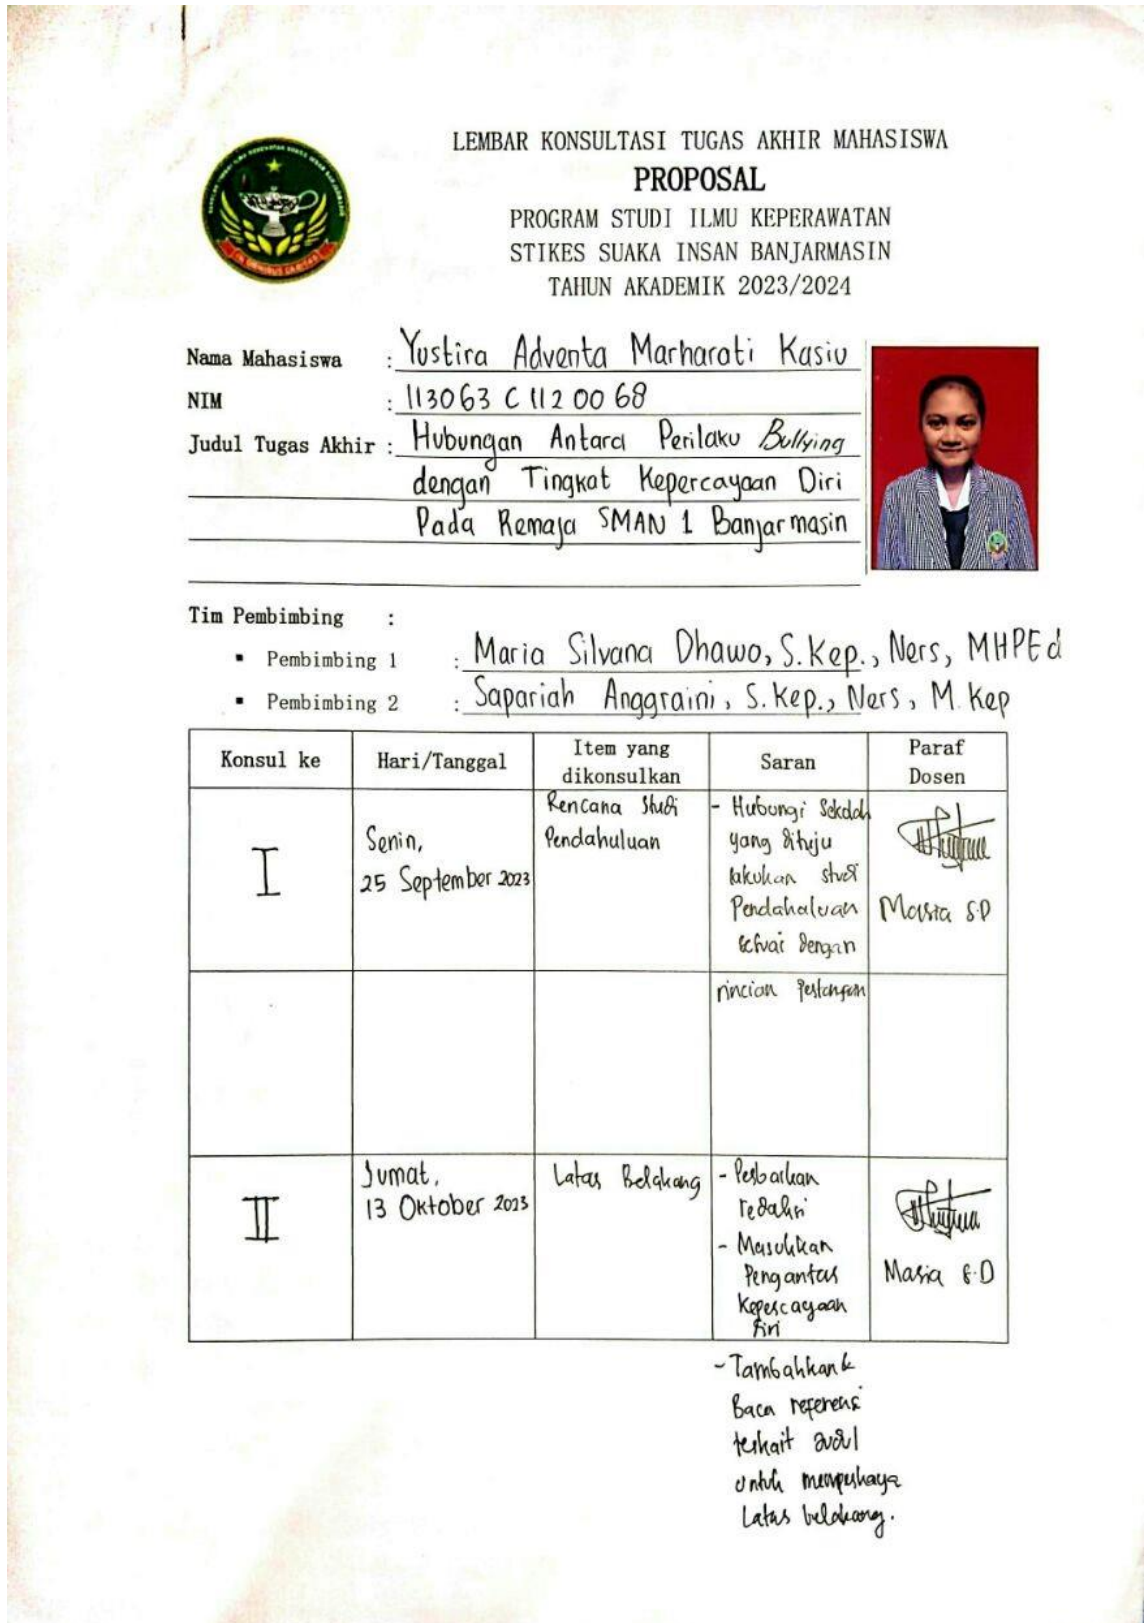 LEMBAR KONSULTASI TUGAS AKHIR MAHASISWA
PROPOSAL
PROGRAM STUDI ILMU KEPERAWATAN
STIKES SUAKA INSAN BANJARMASIN
TAHUN AKADEMIK 2023/2024
Nama Mahasiswa : Yustira Adventa Marharati Kasiu
NIM : 113063 C 112 00 68
Judul Tugas Akhir : Hubungan Antara Perilaku Bullying
dengan Tingkat Kepercayaan Diri
Pada Remaja SMAN 1 Banjarmasin
Tim Pembimbing :
▪ Pembimbing 1 : Maria Silvana Dhawo, S.Kep., Ners, MHPEd
▪ Pembimbing 2 : Sapariah Anggraini, S.Kep., Ners, M.Kep
Konsul ke
Hari/Tanggal
Item yang
dikonsulkan
Saran
Paraf
Dosen
I
Senin,
25 September 2023
Rencana Studi
Pendahuluan
- Hubungi Sekolah
yang dituju
lakukan studi
Pendahuluan
sesuai dengan
rincian
Maria S.D
II
Jumat,
13 Oktober 2023
Latar Belakang
- Perbaikan
redaksi
- Masukkan
Pengantar
Kepercayaan
diri
- Tambahkan &
Baca referensi
terkait judul
untuk memperkaya
Latar belakang.
Maria S.D